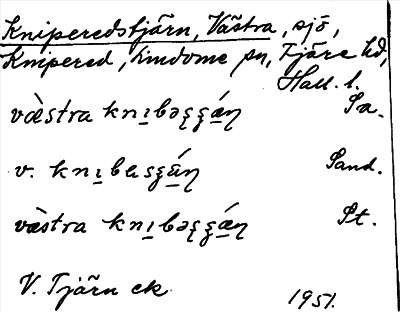 Kniperedstjärn, Västra, sjö,
Knipered, Lindome sn, Fjäre hd,
Hall. l.
væ̀stra knı̱bəşş́æ̱ŋ Sa.
v. knı̱basşä̱́ŋ Sand.
væ̀stra knı̱bəşş́æ̱ŋ St.
V. Tjärn ek 1951.